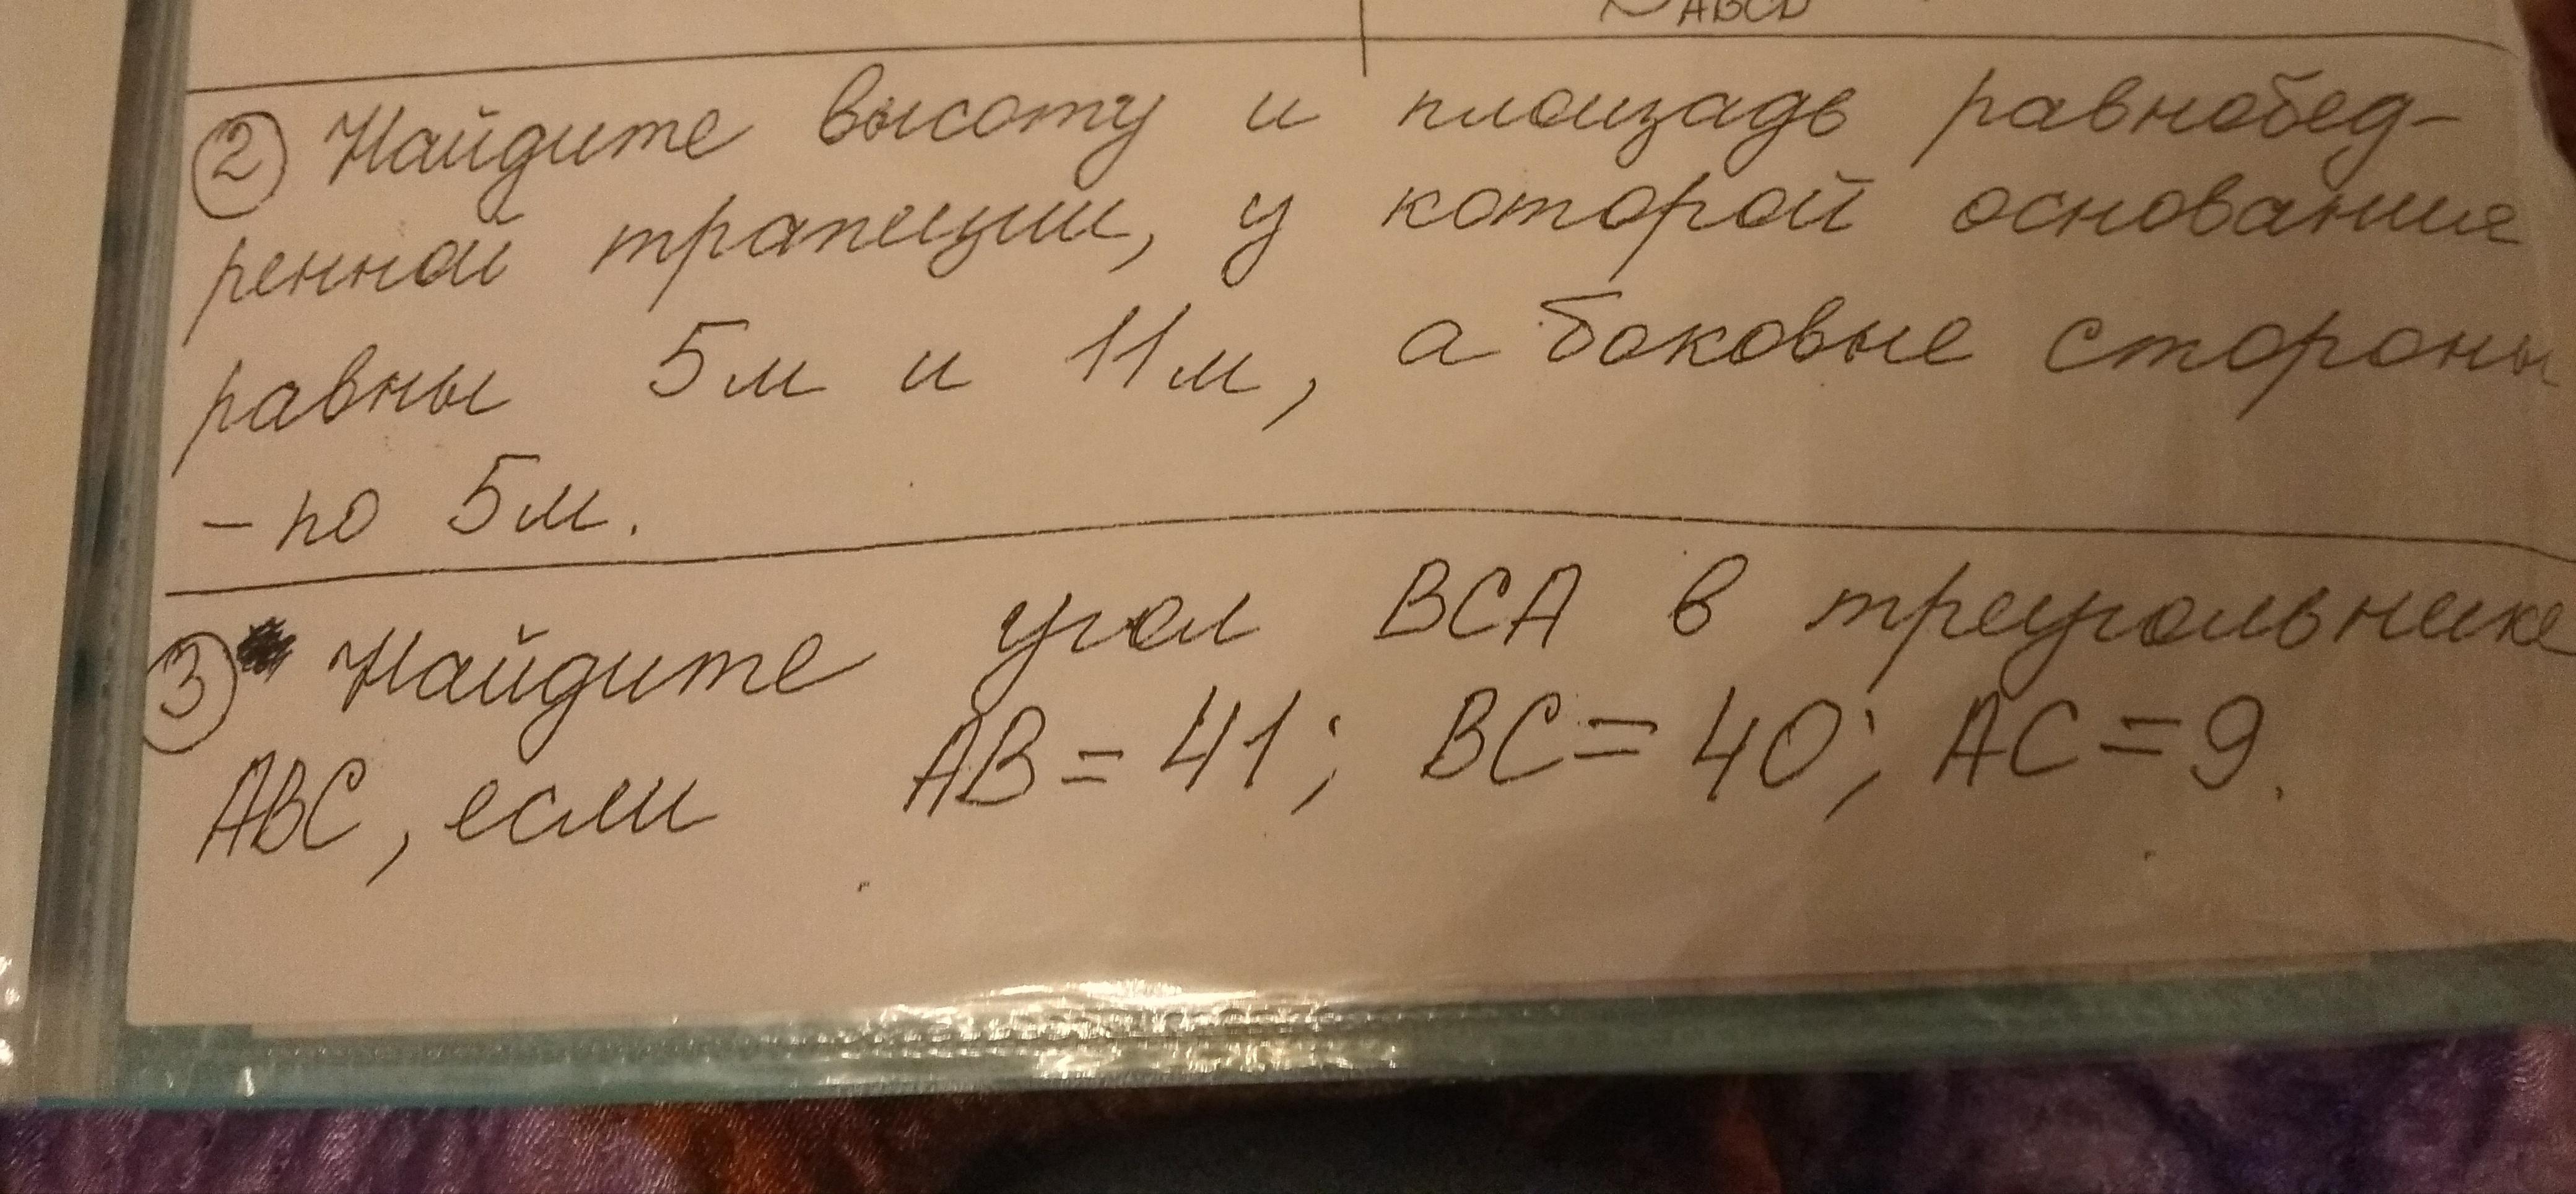 ABCD
② Найдите высоту и площадь равнобед-
ренной трапеции, у которой основания
равны 5м и 11м, а боковые стороны
- по 5м.
③ Найдите угол BCA в треугольнике
ABC, если AB = 41; BC = 40; AC = 9.